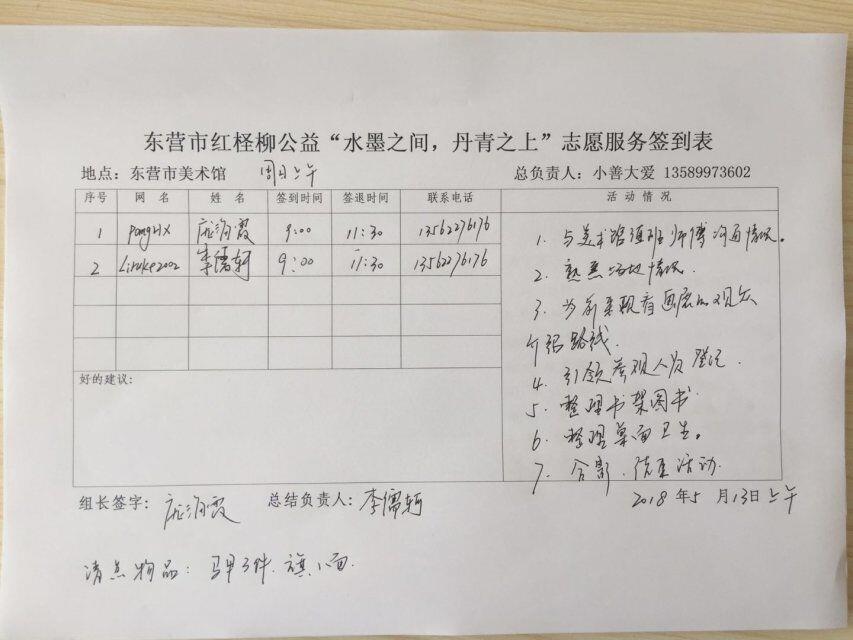 东营市红柽柳公益“水墨之间，丹青之上”志愿服务签到表
地点：东营市美术馆 周日上午 总负责人：小善大爱 13589973602
序号 网 名 姓 名 签到时间 签退时间 联系电话 活 动 情 况
1 PangHX 庞 霞 9:00 11:30 13562276176
2 Liruke2002 李儒轲 9:00 11:30 13562276176
1. 与美术馆值班师傅沟通情况。
2. 熟悉场地情况.
3. 为前来观看画展的观众
介绍路线.
4. 引领参观人员登记.
5. 整理书架图书
6. 整理桌面卫生。
7. 合影.结束活动.
好的建议：
组长签字： 庞 霞 总结负责人：李儒轲
2018 年5 月13日上午
清点物品： 马甲3件. 旗1面.